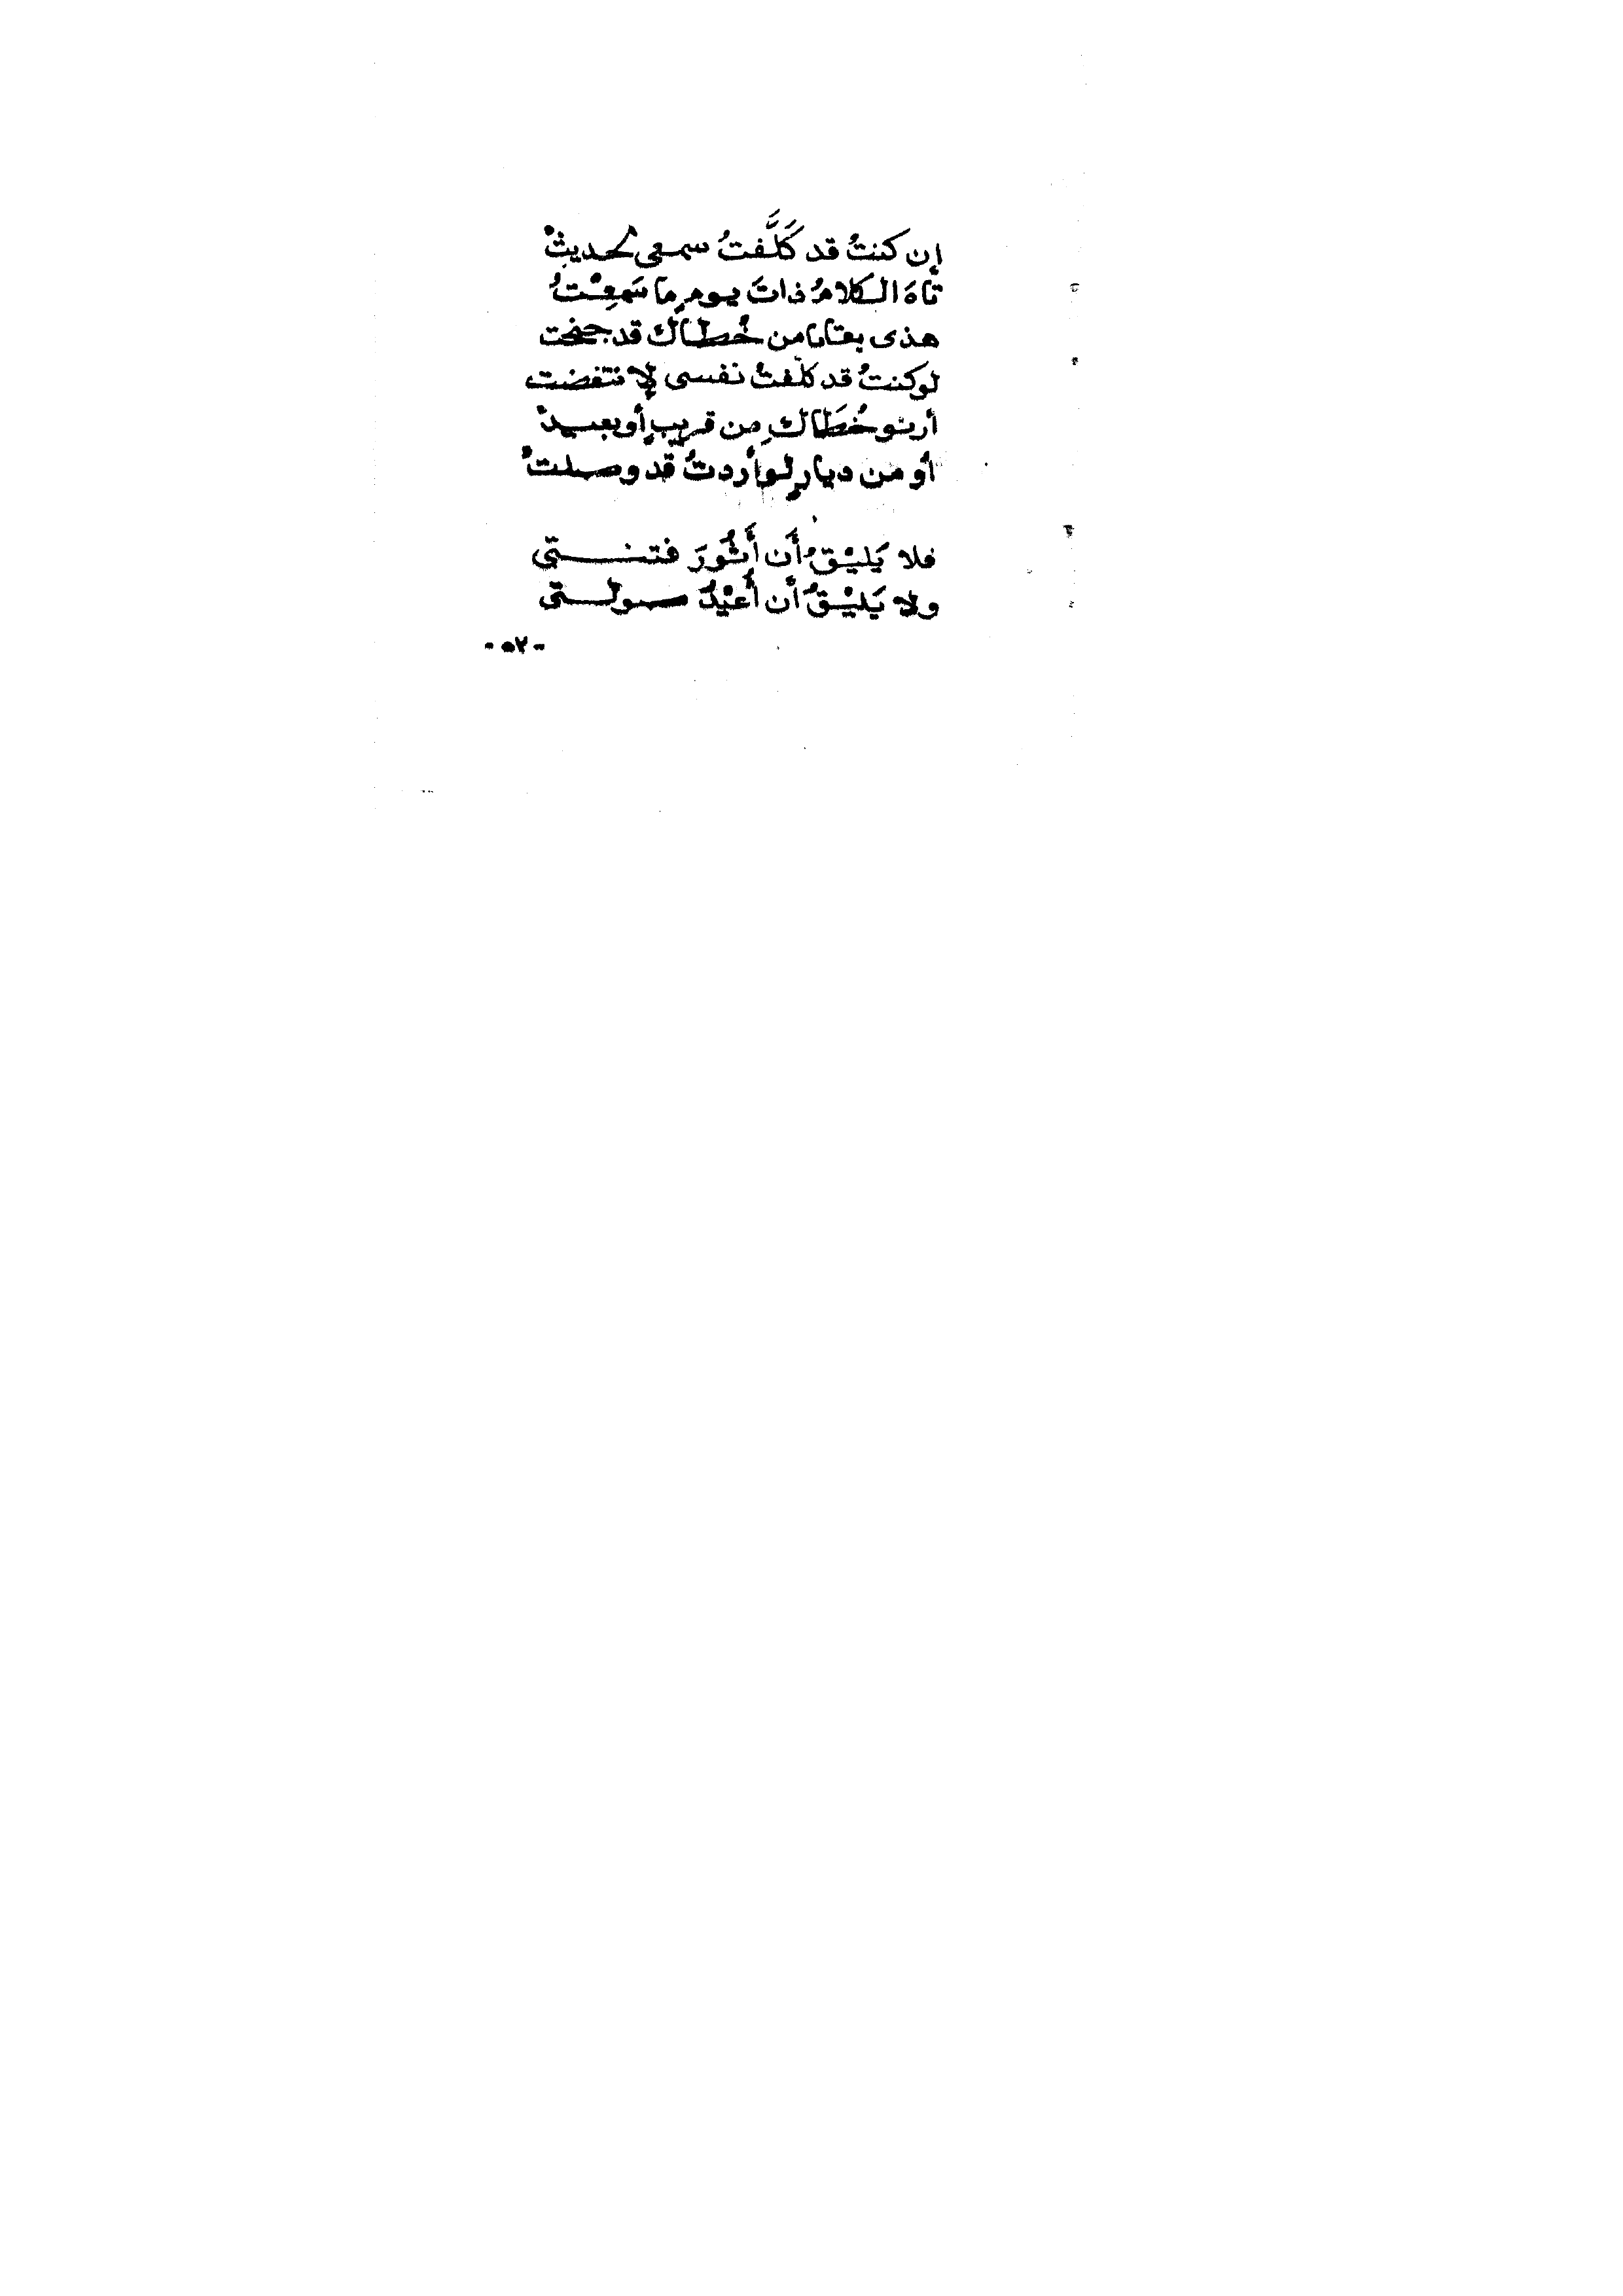 إن كنتُ قد كَلَّفتُ سمعى لحديثْ
تاهَ الكلامُ ذاتَ يومٍ ما سَمِعْتُ
هذى بقايا من خُطاك قد
لو كنتُ قد كلّفتُ نفسى لانتفضت
أرنو خُطَاكِ من قريبٍ أو بعيدْ
أو من ديارٍ لو أردتُ قد وصلتْ
فلا يَليْقُ أَن أَثُورَ فتنتى
ولا يَليْقُ أَن أُعيْدُ صولتى
- ٥٢ -